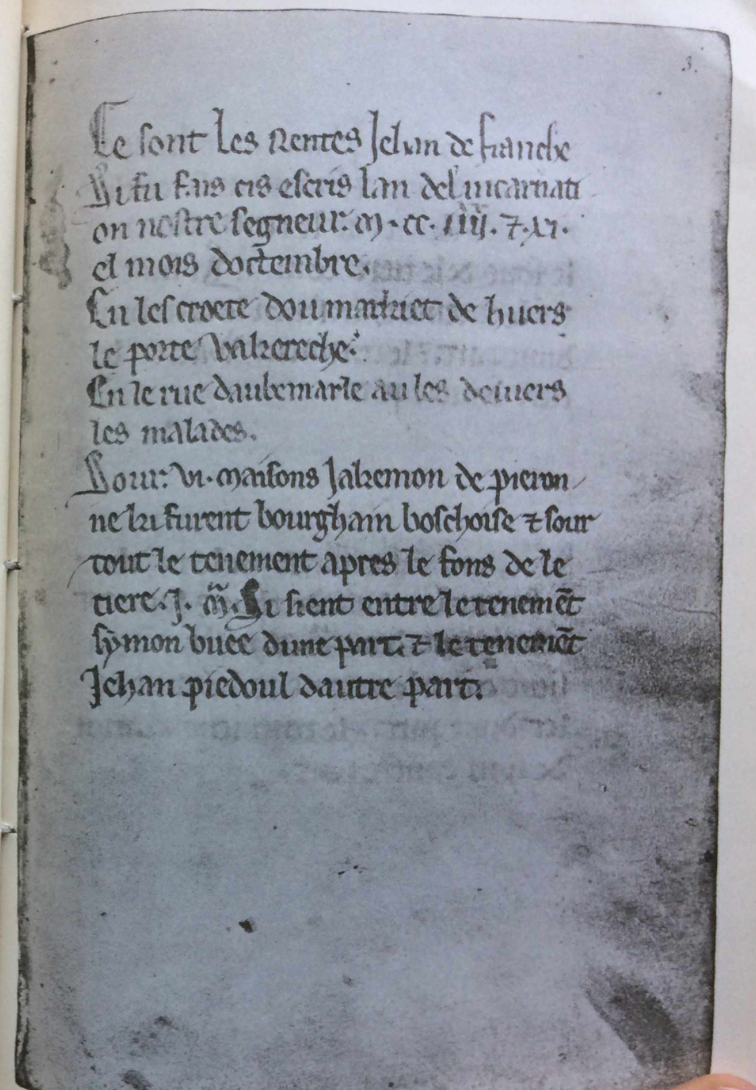 3.
Ce sont les Rentes Jehan de franche
Ki fu fais cis escris lan del incarnati
on nostre segneur. M. CC. IIII. ⁊ XI.
el mois doctembre.
En le scroete dou markiet de huers
le porte Vakereche.
En le rue daubemarle au les deuuers
les malades.
Sour. VI. Maisons Jakemon de pieron
ne ki furent bourghain boschoise ⁊ sour
tout le tenement apres le fons de le
tiere. J. M̃. Ki sient entre le tenemẽt
symon buee dune part. ⁊ le tenemẽt
Jehan piedoul dautre part.